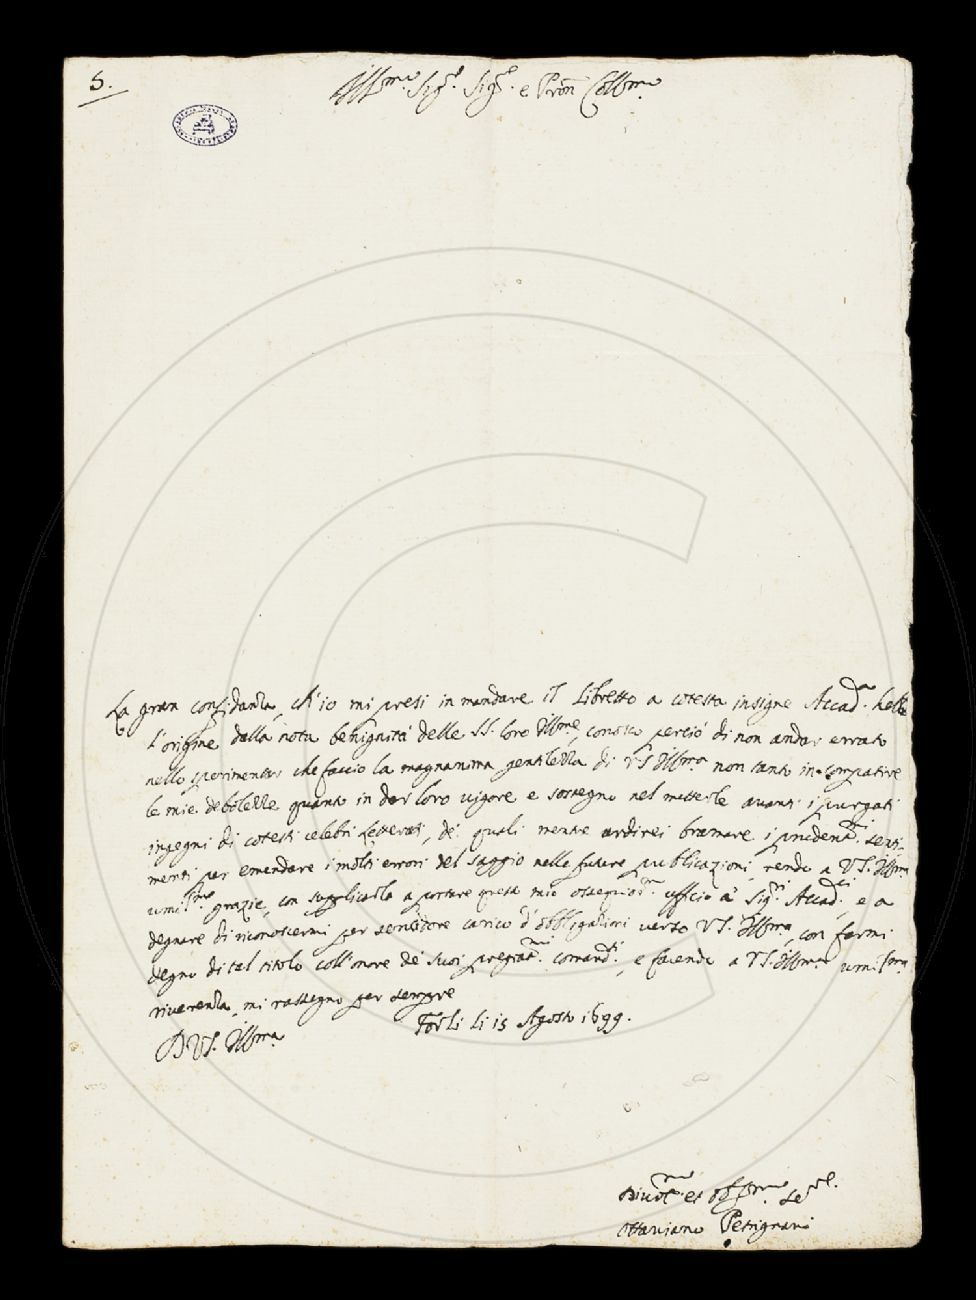 5.
Ill.mo Sig.r Sig.r e Pron Coll.mo
La gran confidanza, ch'io mi presi in mandare il Libretto a cotesta insigne Accad.a hebbe
l'origine dalla nota benignità delle SS. loro Ill.me, conosco perciò di non andar errato
nello sperimentar che faccio la magnanima gentilezza di VS Ill.ma non tanto in compatire
le mie debolezze quanto in dar loro vigore e sostegno nel metterle avanti i purgati
ingegni di cotesti celebri Letterati, de' quali mentre ardirei bramare i prudent.mi senti-
menti per emendare i molti errori del saggio nelle future publicazioni, rendo a VS. Ill.ma
umil.me grazie, con supplicarla a portare questo mio ossequios.mo ufficio a' Sig.ri Accad.ci, e a
degnare di riconoscermi per servitore carico d'obbligazioni verso VS. Ill.ma, con farmi
degno di tal titolo coll'onore de' suoi pregiat.mi comand.ti, e facendo a VS. Ill.ma umil.ma
riverenza, mi rassegno per sempre
D VS. Ill.ma
Forlì li 15 Agosto 1699.
Divot.mo et obb.mo Se.re
Ottaviano Petrignani